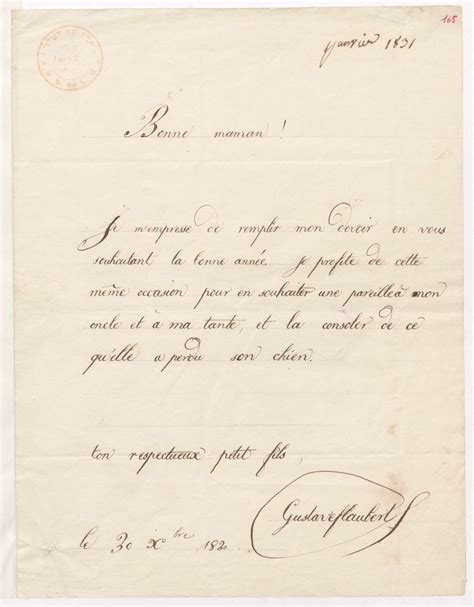 165
janvier 1831
Bonne maman !
Je m'empresse de remplir mon devoir en vous
souhaitant la bonne année. je profite de cette
même occasion pour en souhaiter une pareille à mon
oncle et à ma tante, et la consoler de ce
qu'elle a perdu son chien.
ton respectueux petit fils,
Gustave flaubert
le 30 Xbre 1830